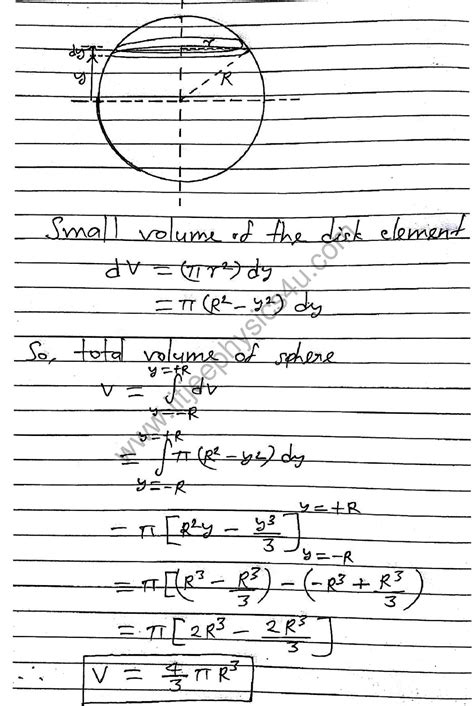 dy
r
y
R
Small volume of the disk element
dV = (πr²) dy
= π (R² − y²) dy
So, total volume of sphere
y=+R
V = ∫ dV
y=−R
y=+R
= ∫ π (R² − y²) dy
y=−R
− π [R²y − y³/3] y=+R
y=−R
= π [(R³ − R³/3) − (−R³ + R³/3)
= π [2R³ − 2R³/3]
∴ V = 4/3 πR³
www.iitjeephysics4u.com